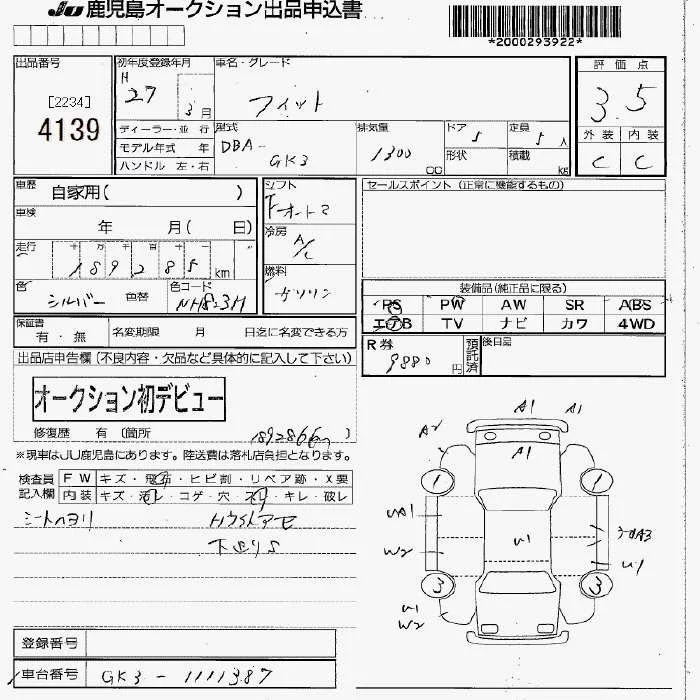 JU 鹿児島オークション出品申込書
*2000293922*
出品番号 [2234] 4139
初年度登録年月 H 27 3月
車名・グレード フィット
評価点 3.5
外装 C 内装 C
ディーラー・並 行
モデル年式 年
ハンドル 左・右
型式 DBA- GK3
排気量 1300 cc
ドア 5
形状
定員 5 人
積載 kg
車歴 自家用( )
車検 年 月( 日)
走行 十 万 千 百 十 189285 km
色 シルバー 色替 色コード NH823M
シフト オートマ
冷房 A/C
燃料 ガソリン
セールスポイント (正常に機能するもの)
装備品(純正品に限る)
PS PW AW SR ABS
エアB TV ナビ カワ 4WD
保証書 有・無 名変期限 月 日迄に名変できる方
R券 9880円 預託済 後日品
出品店申告欄 (不良内容・欠品など具体的に記入して下さい)
オークション初デビュー
修復歴 有 〔箇所 〕
※現車はJU鹿児島にあります。陸送費は落札店負担となります。
検査員記入欄 FW キズ・飛石・ヒビ割・リペア跡・X要
内装 キズ・汚レ・コゲ・穴・スレ・キレ・破レ
シートヘタリ
下廻りS
A1 A1
A2 A1
1 1
UA1
W2 U1 A3
U1
3 3
U1
W2
登録番号
車台番号 GK3-1111387